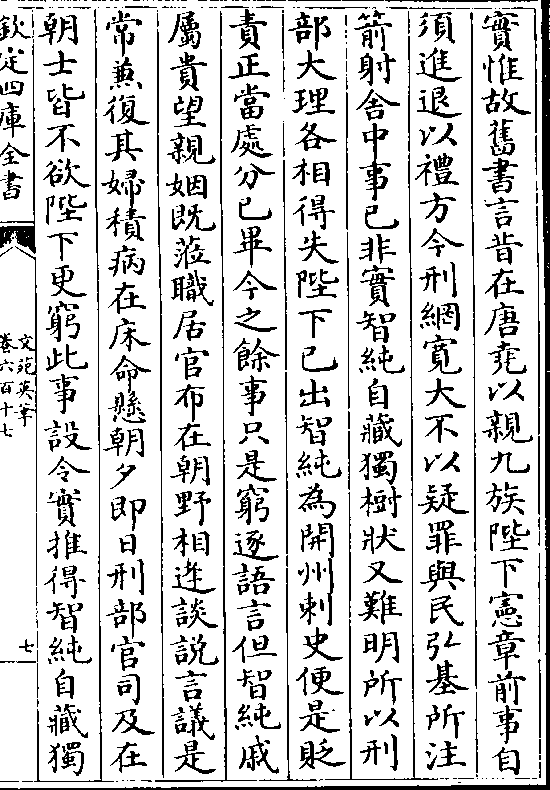 實惟故舊書言昔在唐堯以親九族陛下憲章前事自
須進退以禮方今刑網寛大不以疑罪與民弘基所注
箭射舎中事已非實智純自藏獨樹狀又難明所以刑
部大理各相得失陛下已出智純為開州刺史便是貶
責正當處分已畢今之餘事只是窮逐語言但智純戚
屬貴望親姻既蒞職居官布在朝野相逢談説言議是
常兼復其婦積病在床命懸朝夕即日刑部官司及在
朝士皆不欲陛下更窮此事設令實推得智純自藏獨
欽定四庫全書
文苑英華
卷六百十七
七